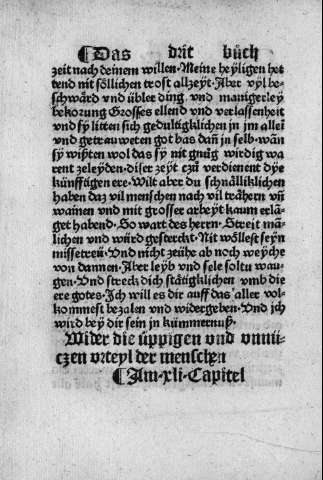 ¶Das drit bůch
zeit nach deinem willen·Meine heyligen het
tend nit söllichen trost allzeyt·Aber vyl be-
schwärd vnd übler ding vnd manigerley
bekorung Grosses ellend vnd verlassenheit
vnd sy litten sich gedultigklichen jn jm allem̄
vnd getrauweten got bas dañ jn selb·wañ
sy wißten wol das sy nit gnůg wirdig wa
rent zeleyden·diser zeyt czů verdienent dye
künfftigen ere·Wilt aber du schnälliklichen
haben daz vil menschen nach vil trähern vñ
wainen vnd mit grosser arbeyt kaum erlan̄
get habend·So wart des herrn·Streit mä
lichen vnd würd gesterckt·Nit wöllest seyn
missetreü·Vnd nicht zeühe ab noch weyche
von dannen·Aber leyb vnd sele soltu wau-
gen·Vnd streck dich stätigklichen vmb die
ere gotes·Ich will es dir auff das aller vol-
kommnest bezalen vnd widergeben·Vnd jch
wird bey dir sein jn kümmernuß·
Wider die üppigen vnd vnnü-
czen vrteyl der menschen
¶Am·xli·Capitel